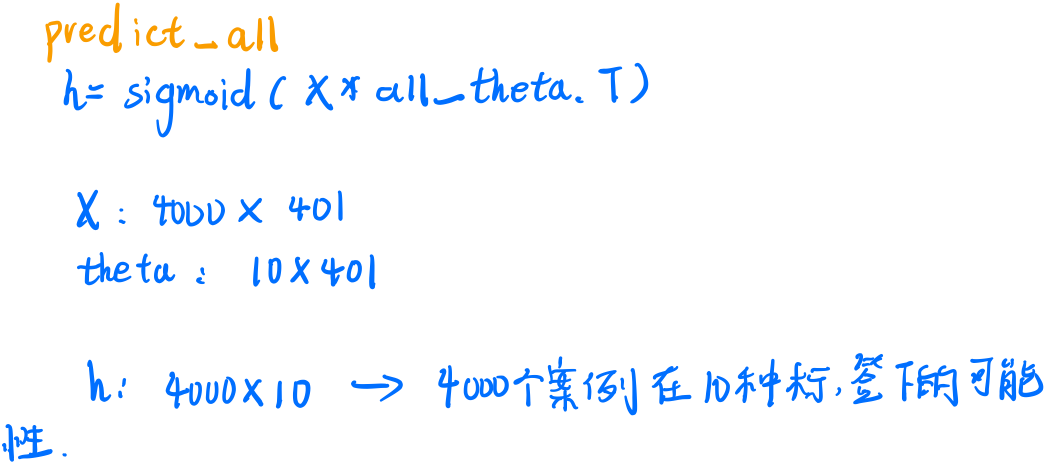 predict_all
h= sigmoid ( X * all_theta. T)
X : 4000 × 401
theta : 10×401
h: 4000×10 → 4000个案例在10种标签下的可能
性.